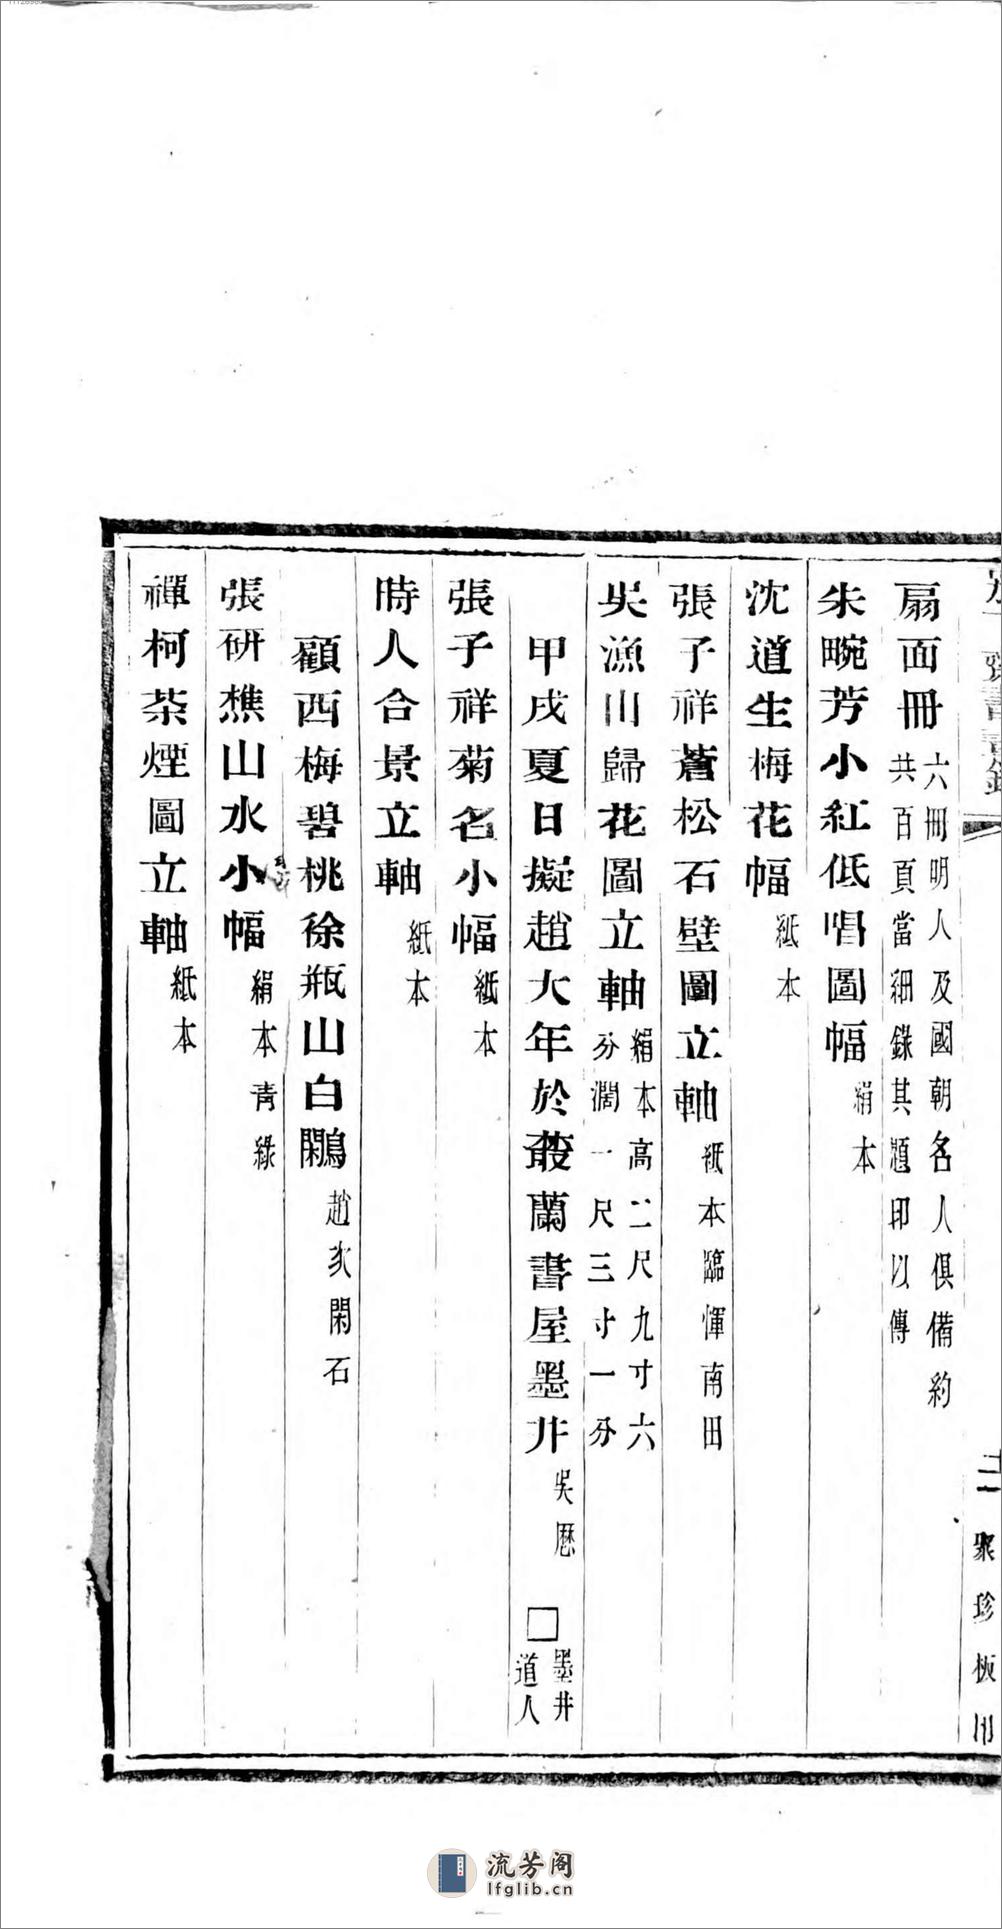 扇面冊 六冊明人及國朝名人俱備約
共百頁當細錄其題印以傳
朱畹芳小紅低唱圖幅 絹本
沈道生梅花幅 紙本
張子祥蒼松石壁圖立軸 紙本臨惲南田
吳漁川歸花圖立軸 絹本高二尺九寸六
分濶一尺三寸一分
甲戌夏日擬趙大年於叢蘭書屋墨井 吳歷 □ 墨井
道人
張子祥菊名小幅 紙本
時人合景立軸 紙本
顧西梅碧桃徐瓶山白鷴 趙次閑石
張研樵山水小幅 絹本青綠
禪柯茶煙圖立軸 紙本
二 聚珍板印
流芳阁
lfglib.cn